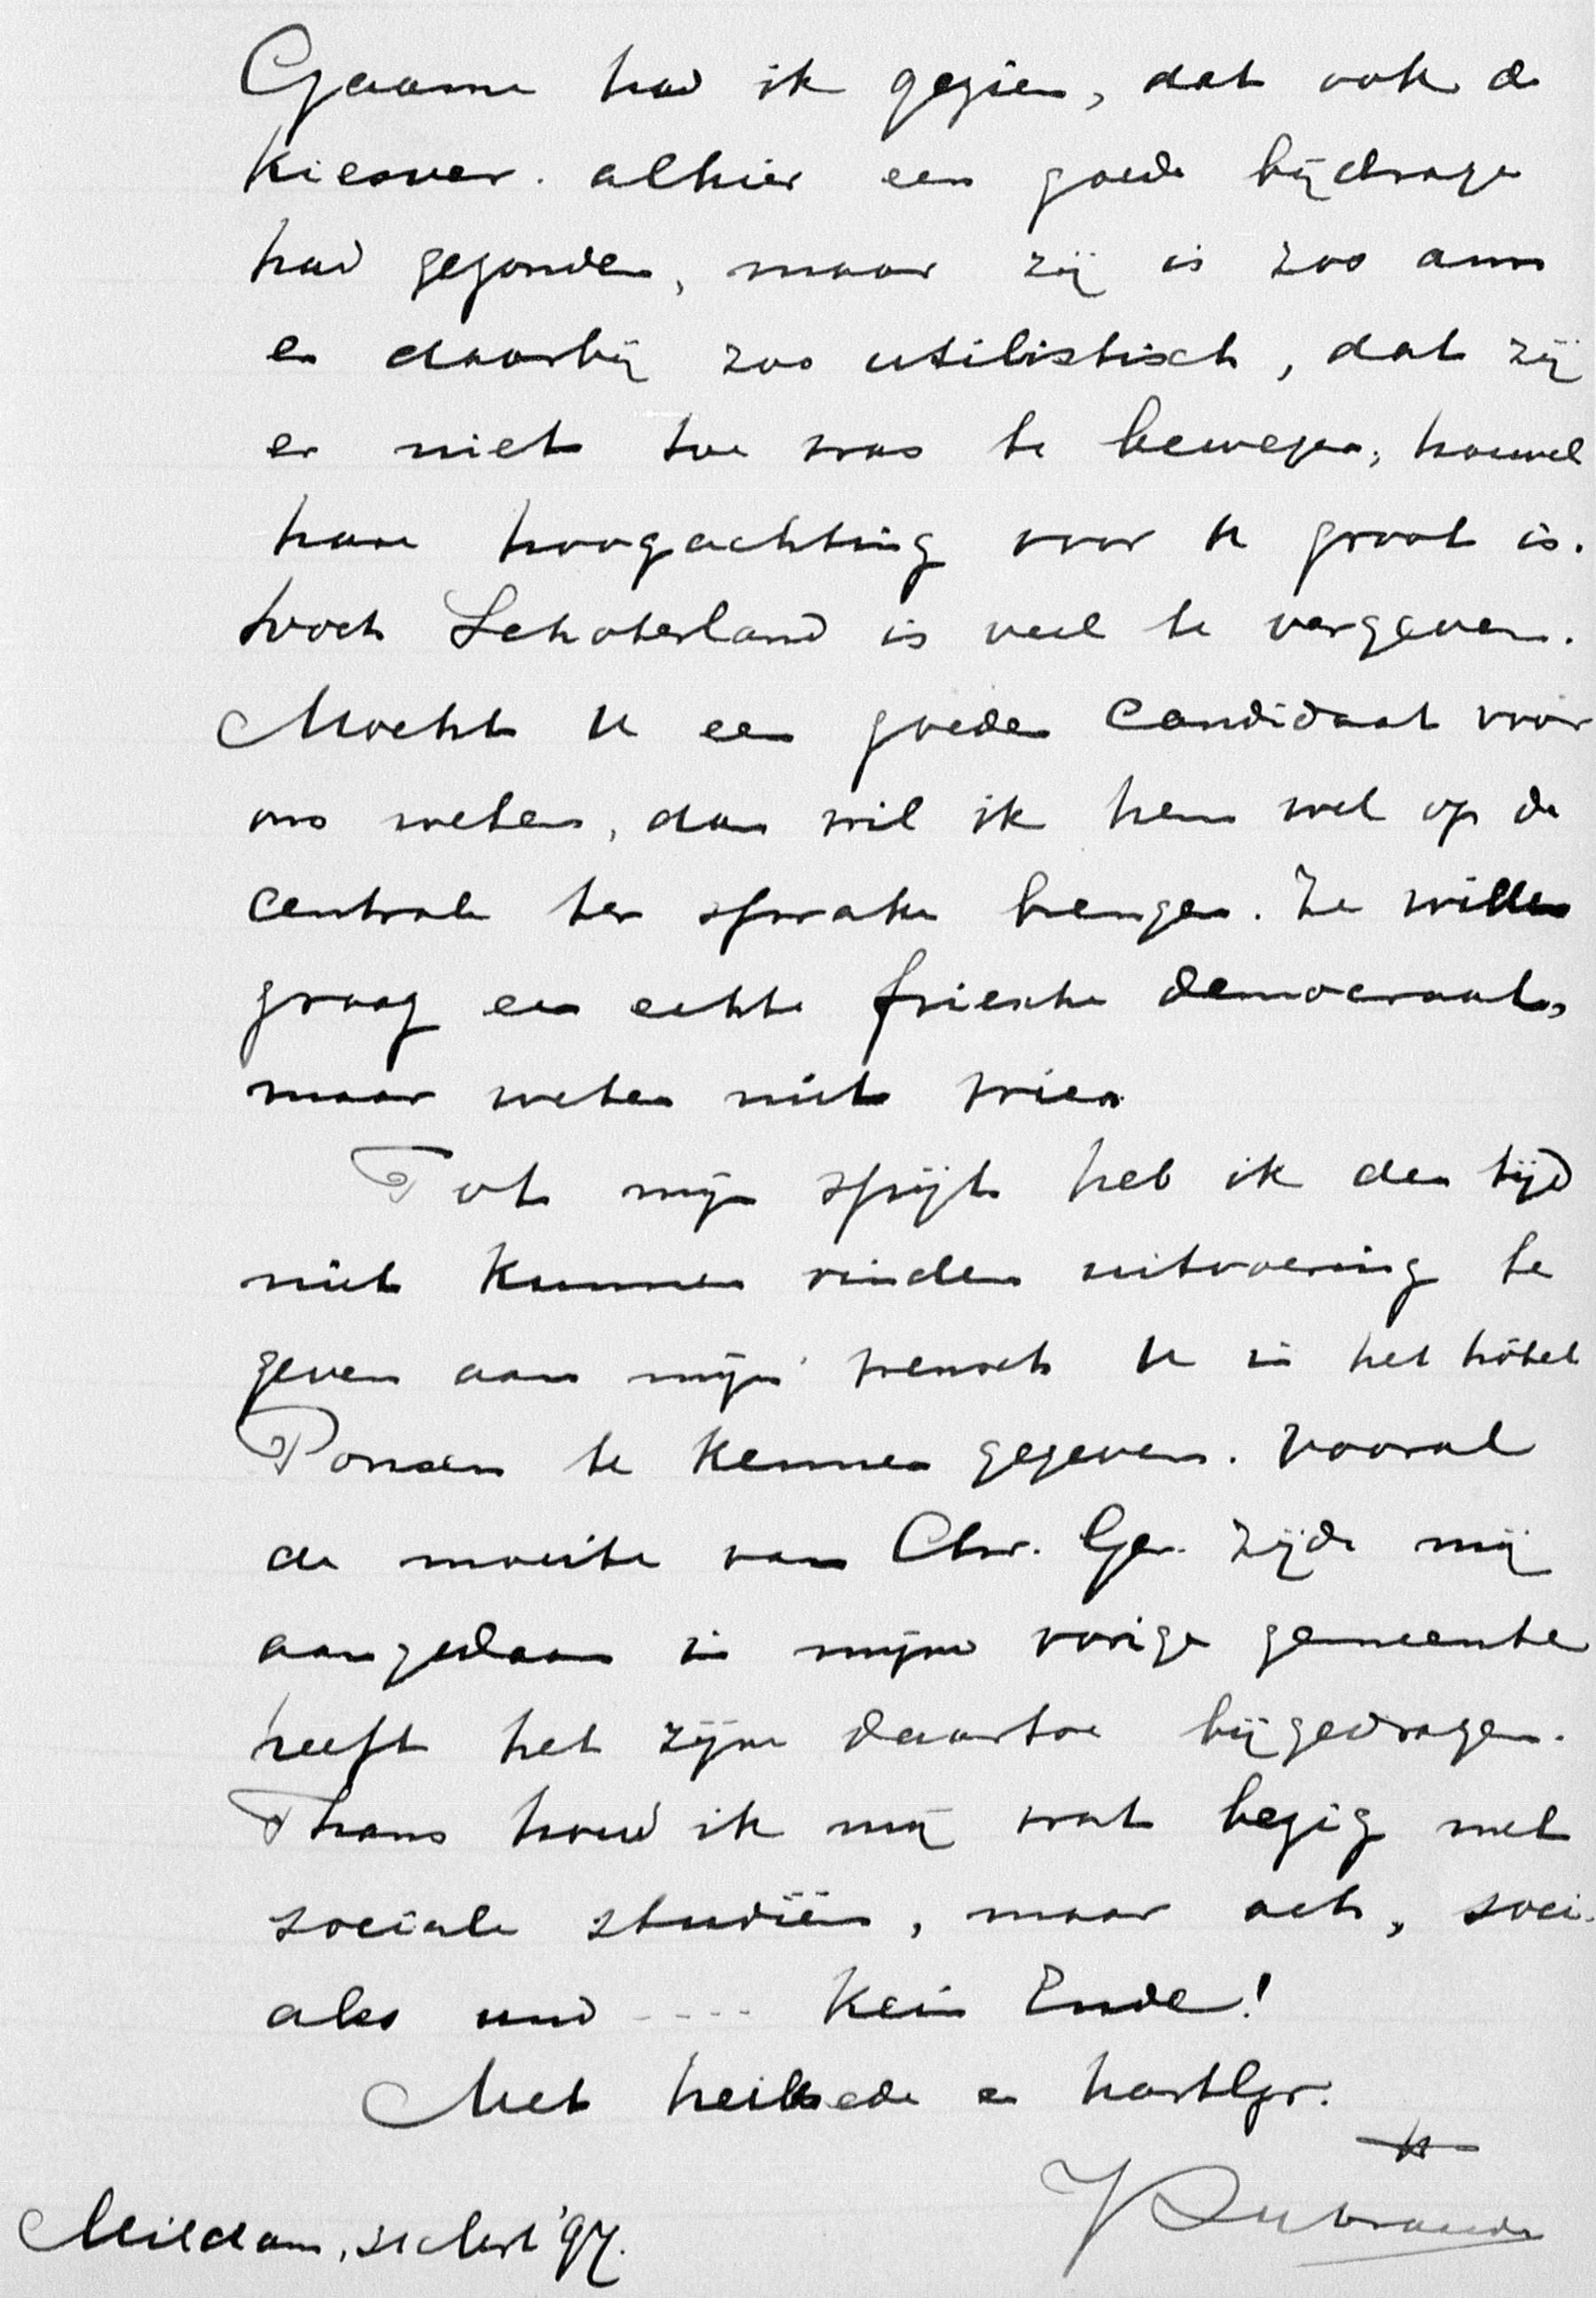 Gaarne had ik gezien, dat ook de
Kiesver. alhier een goede bijdrage
had gezonden, maar zij is zoo arm
en daarbij zoo utilistisch, dat zij
er niet toe was te bewegen, hoewel
hare hoogachting voor U groot is.
Doch Schoterland is veel te vergeven.
Mocht U een goeden candidaat voor
ons weten, dan wil ik hem wel op de
Centrale ter sprake brengen. Ze willen
graag een echte friesche democraat,
maar weten niet wien
Tot mijn spijt heb ik den tijd
niet kunnen vinden uitvoering te
geven aan mijn wensch U in het hôtel
Ponsen te kennen gegeven. Vooral
de moeite van Chr. Ger. zijde mij
aangedaan in mijne vorige gemeente
heeft het zijne daartoe bijgedragen.
Thans houd ik mij wat bezig met
sociale studiën, maar ach, soci-
ales und ---- kein Ende!
Met heilbede en hartlgr.
Mildam, 31 Mrt '97.